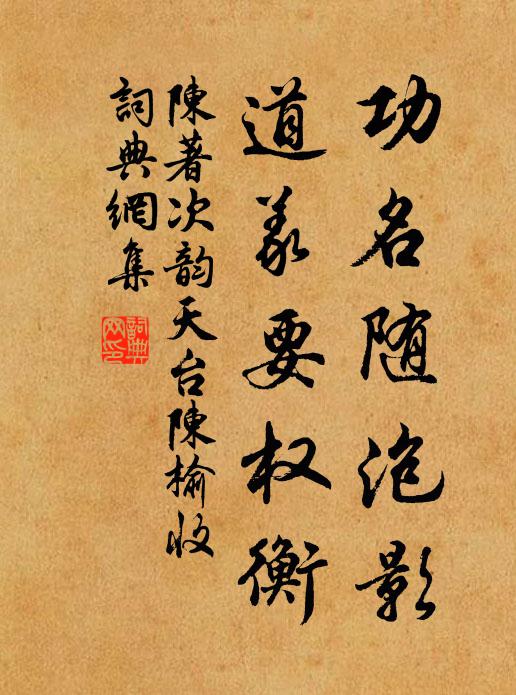 功名随泡影
道義要权衡
陳著次韵天台陳榆收
詞典網集
詞典
网印